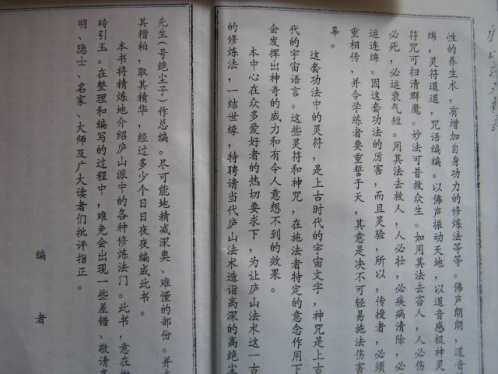 性的养生术,有增加自身功力的修炼法等等。佛声朗朗,道音
绵,灵符道道,咒语编编。以佛声振动天地,以道音感极神灵
符咒可扫清群魔。妙法可普救众生。如用其法去害人,人必伤
必死,必运衰气短。用其法去救人,人必壮,必疾病清除,必
运连绵。因这套功法的厉害,而且灵验,所以,传授者,必须
重相传,并令学练者要重誓于天,其意是决不可轻易施法伤害
辜。
这套功法中的灵符,是上古时代的宇宙文字,神咒是上古
代的宇宙语言。这些灵符和神咒,在施法者特定的意念作用下
会发挥出神奇的威力和有令人意想不到的效果。
本中心在众多爱好者的热切要求下,为让庐山法术这一古
的修炼法,一结世缘,特聘请当代庐山法术造诣高深的高绝尘
先生(号绝尘子)作总编。尽可能地精减深奥、难懂的部份。并
其糟粕,取其精华,经过多少个日日夜夜编成此书。
本书将精炼地介绍庐山派中的各种修炼法门。此书,意在抛
砖引玉。在整理和编写的过程中,难免会出现一些差错、敬请
明、隐士、名家、大师及广大读者们批评指正。
编 者